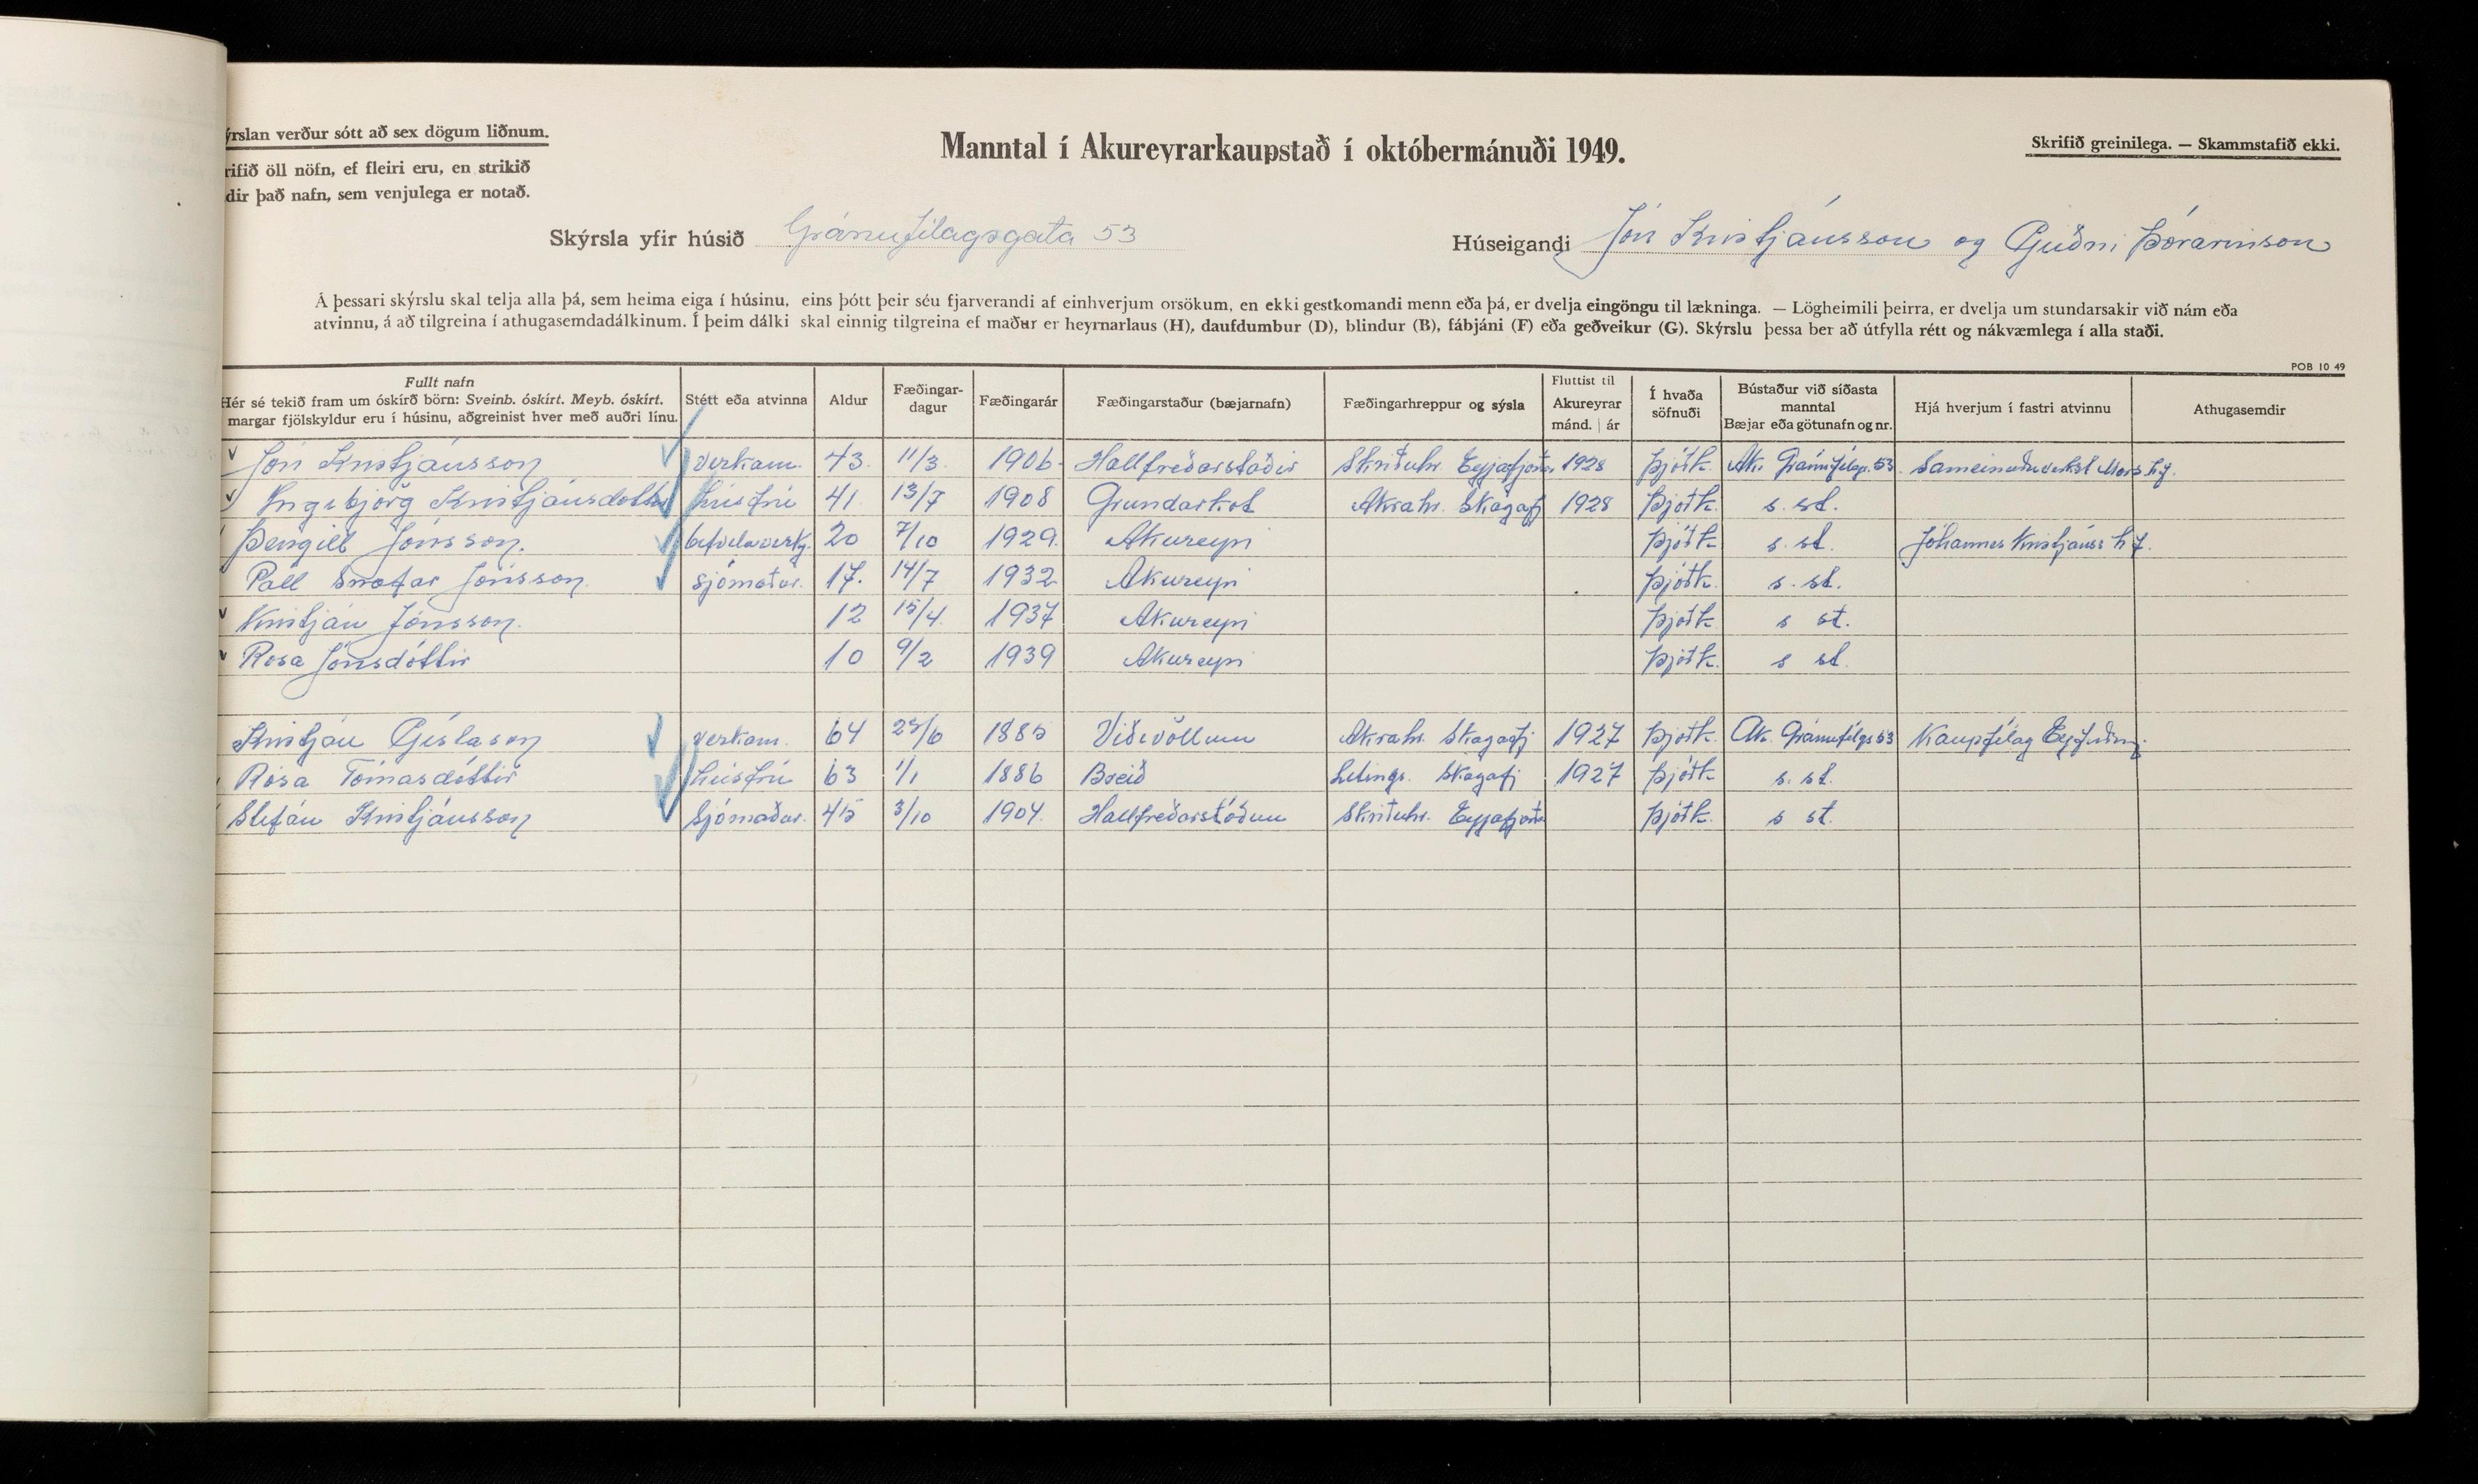 ýrslan verður sótt að sex dögum liðnum.
rifið öll nöfn, ef fleiri eru, en strikið
dir það nafn, sem venjulega er notað.
Manntal í Akureyrarkaupstað í októbermánuði 1949.
Skrifið greinilega. — Skammstafið ekki.
Skýrsla yfir húsið Gránufélagsgata 53
Húseigandi Jón Kristjánsson og Guðni Þórarinson
Á þessari skýrslu skal telja alla þá, sem heima eiga í húsinu, eins þótt þeir séu fjarverandi af einhverjum orsökum, en ekki gestkomandi menn eða þá, er dvelja eingöngu til lækninga. — Lögheimili þeirra, er dvelja um stundarsakir við nám eða
atvinnu, á að tilgreina í athugasemdadálkinum. Í þeim dálki skal einnig tilgreina ef maður er heyrnarlaus (H), daufdumbur (D), blindur (B), fábjáni (F) eða geðveikur (G). Skýrslu þessa ber að útfylla rétt og nákvæmlega í alla staði.
POB 10 49
Fullt nafn
Hér sé tekið fram um óskírð börn: Sveinb. óskírt. Meyb. óskírt.
margar fjölskyldur eru í húsinu, aðgreinist hver með auðri línu.
Stétt eða atvinna
Aldur
Fæðingar-
dagur
Fæðingarár
Fæðingarstaður (bæjarnafn)
Fæðingarhreppur og sýsla
Fluttist til
Akureyrar
mánd. | ár
Í hvaða
söfnuði
Bústaður við síðasta
manntal
Bæjar eða götunafn og nr.
Hjá hverjum í fastri atvinnu
Athugasemdir
Jón Kristjánsson verkam. 43. 11/3. 1906. Hallfreðarstaðir Skriðuhr. Eyjafjarðar 1928 Þjóðk. Ak. Gránufélag. 53. Sameinuðu verkst Mars h.f.
Ingibjörg Kristjánsdóttir húsfrú 41. 13/7 1908 Grundarkot Akrahr. Skagafj 1928 Þjóðk. s. st.
Þengill Jónsson. 20 7/10 1929. Akureyri Þjóðk s. st. Jóhannes Kristjánss h f.
Páll Snæfar Jónsson sjómaður. 17. 14/7 1932 Akureyri Þjóðk. s. st.
Kristján Jónsson. 12 15/4. 1937 Akureyri Þjóðk s st.
Rósa Jónsdóttir 10 9/2 1939 Akureyri Þjóðk. s st.
Kristján Gíslason verkam. 64 23/6 1885 Víðivöllum Akrahr. Skagafj 1927 Þjóðk. Ak. Gránufélgs 53 Kaupfélag Eyfirðing.
Rósa Tómasdóttir húsfrú 63 1/1 1886 Breið Skagafj 1927 Þjóðk. s. st.
Stefán Kristjánsson Sjómaður. 45 3/10 1904. Hallfreðarstöðum Skriðuhr. Eyjafjarðar Þjóðk. s st.